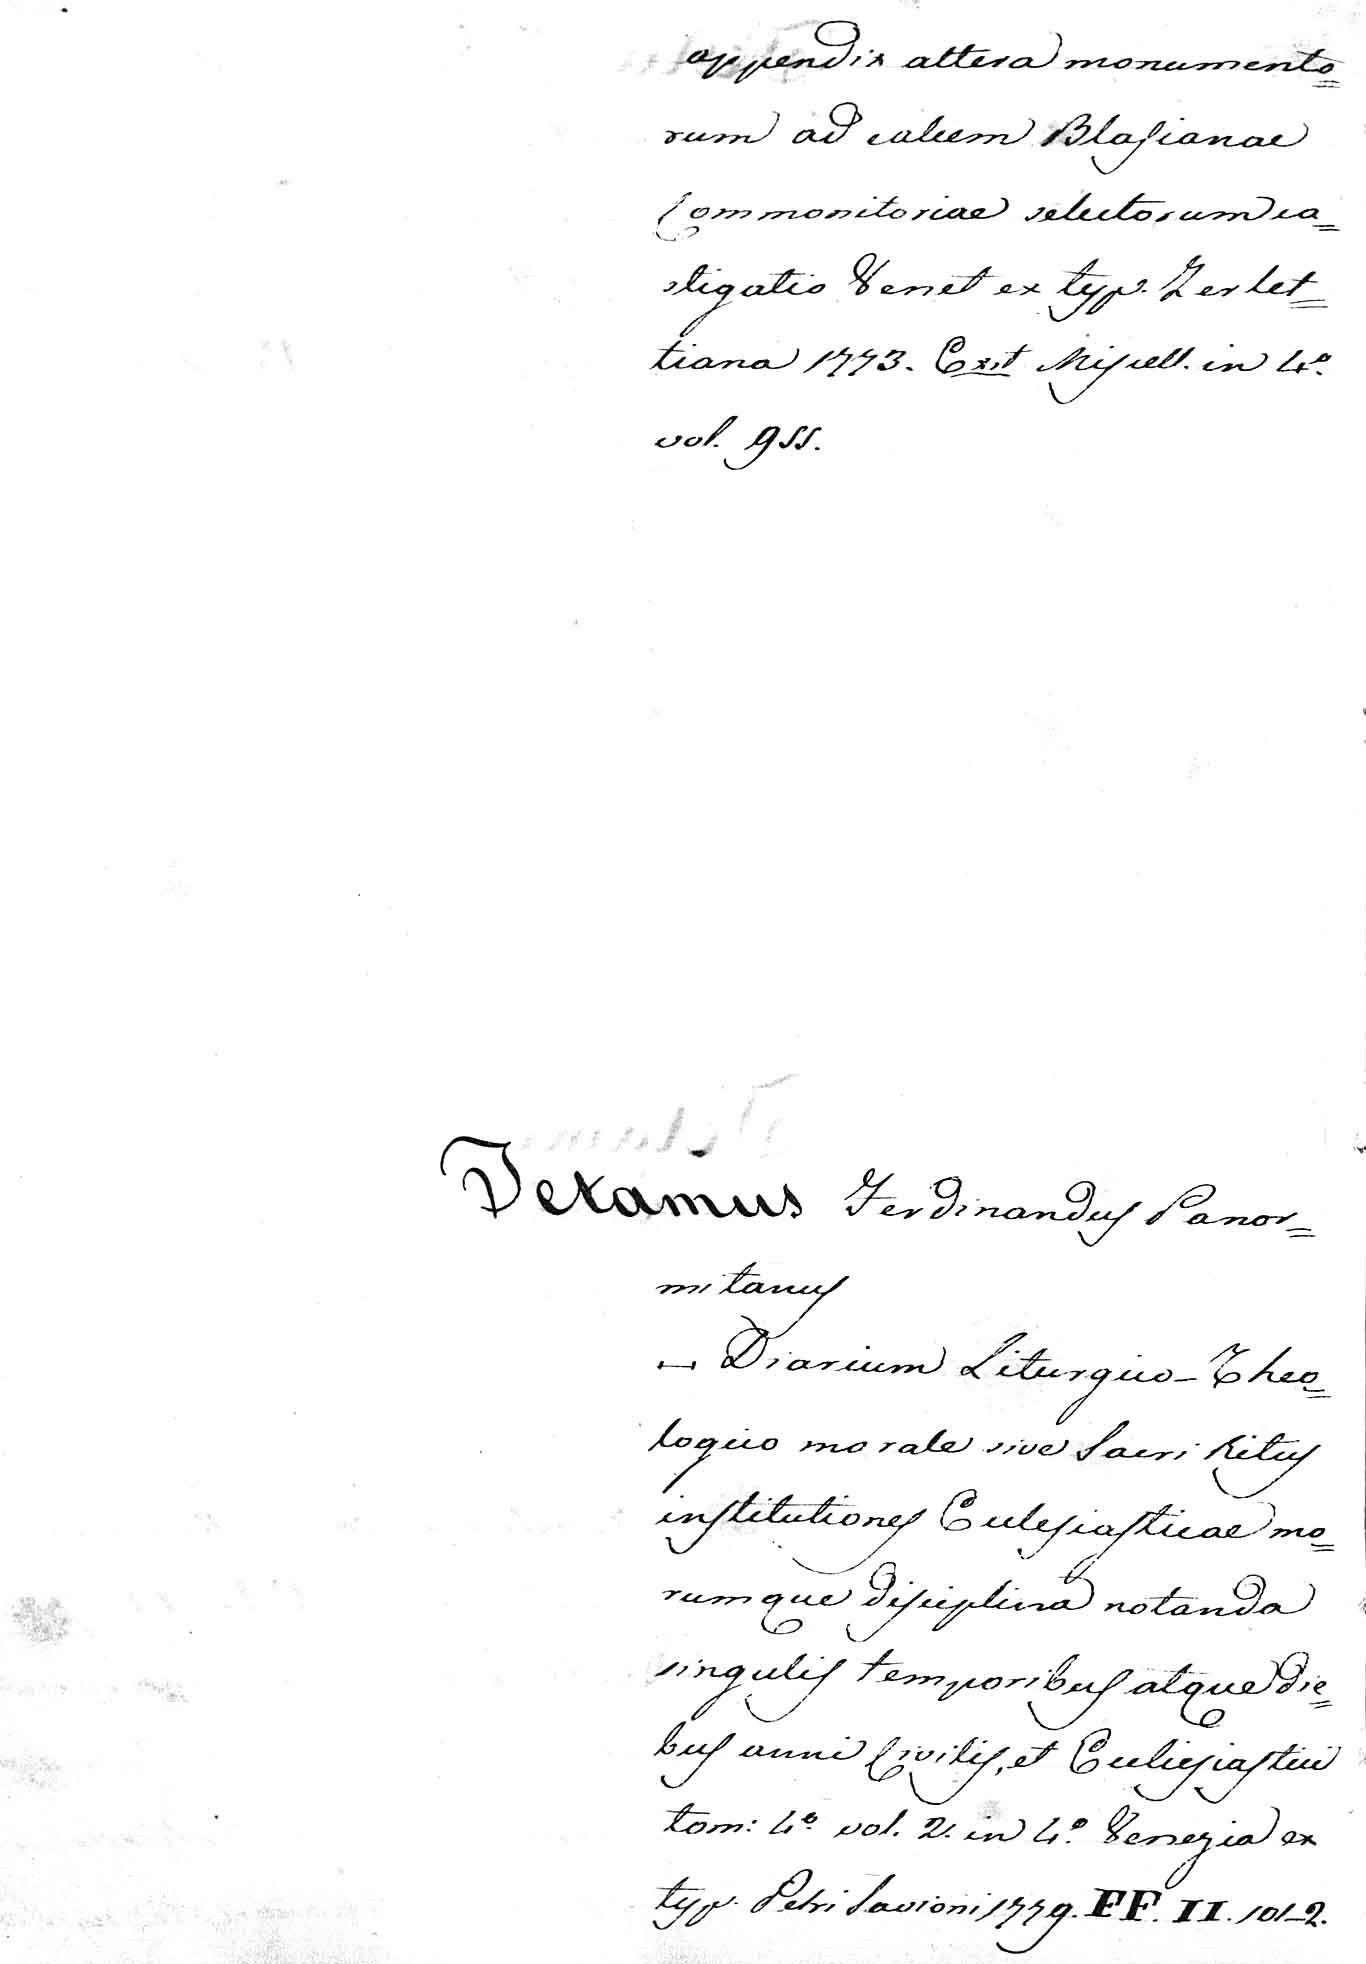 appendix altera monumento=
rum ad calcem Blasianae
Commonitoriae selectorum ca=
stigatio Venet ex typ. Zerlet=
tiana 1773. Exit Miscell. in 4º.
vol. 955.
Tetamus Ferdinandus Panor=
mitanus
— Diarium Liturgico-Theo=
logico morale sive Sacri Ritus
institutiones Ecclesiasticae mo=
rumque disciplina notanda
singulis temporibus atque die=
bus anni Civilis, et Eccliesiastici
tom: 4º vol. 2. in 4º. Venezia ex
typ. Petri Savioni 1779. FF. II. 101-2.